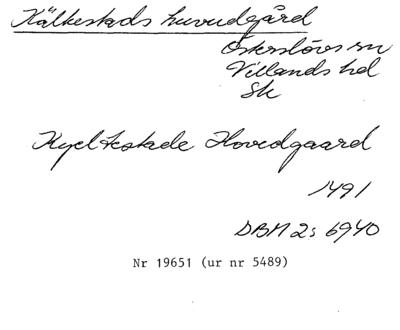 Kälkestads huvudgård
Österslövs sn
Villands hd
Sk
Kyelkestade Hovedgaard
1491
DBH 2: 6940
Nr 19651 (ur nr 5489)